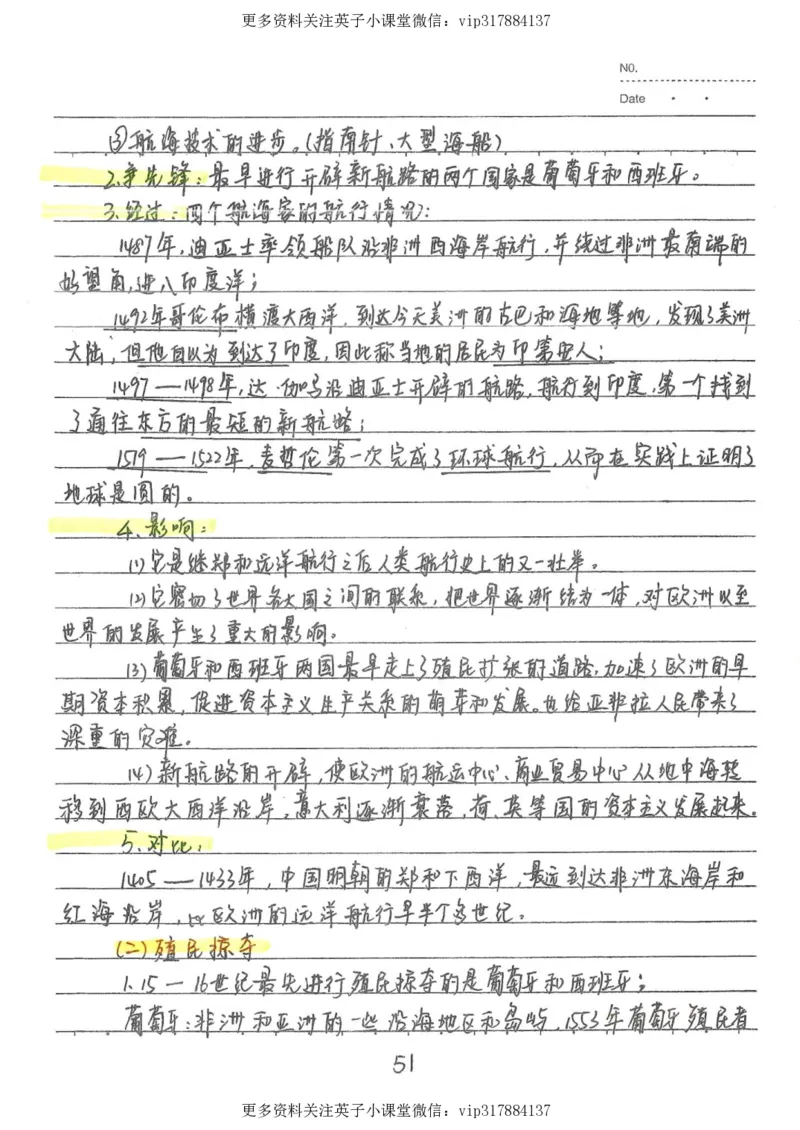 更多资料关注英子小课堂微信：vip317884137
NO.
Date
③航海技术的进步。(指南针、大型海船)
2.争先锋：最早进行开辟新航路的两个国家是葡萄牙和西班牙。
3.经过：四个航海家的航行情况：
1487年，迪亚士率领船队沿非洲西海岸航行，并绕过非洲最南端的
好望角，进入印度洋；
1492年哥伦布横渡大西洋，到达今天美洲的古巴和海地等地，发现了美洲
大陆，但他自以为到达了印度，因此称当地的居民为印第安人；
1497—1498年，达·伽马沿迪亚士开辟的航路，航行到印度，第一个找到
了通往东方的最短的新航路；
1519—1522年，麦哲伦第一次完成了环球航行，从而在实践上证明了
地球是圆的。
4、影响：
(1)它是继郑和远洋航行之后人类航行史上的又一壮举。
(2)它密切了世界各大国之间的联系，把世界逐渐结为一体，对欧洲以至
世界的发展产生了重大的影响。
(3)葡萄牙和西班牙两国最早走上了殖民扩张的道路，加速了欧洲的早
期资本积累，促进资本主义生产关系的萌芽和发展。也给亚非拉人民带来了
深重的灾难。
(4)新航路的开辟，使欧洲的航运中心、商业贸易中心从地中海转
移到西欧大西洋沿岸，意大利逐渐衰落，荷、英等国的资本主义发展起来。
5、对比：
1405—1433年，中国明朝的郑和下西洋，最远到达非洲东海岸和
红海沿岸，比欧洲的远洋航行早半个多世纪。
(二)殖民掠夺
1、15—16世纪最先进行殖民掠夺的是葡萄牙和西班牙；
葡萄牙：非洲和亚洲的一些沿海地区和岛屿，1553年葡萄牙殖民者
51
更多资料关注英子小课堂微信：vip317884137